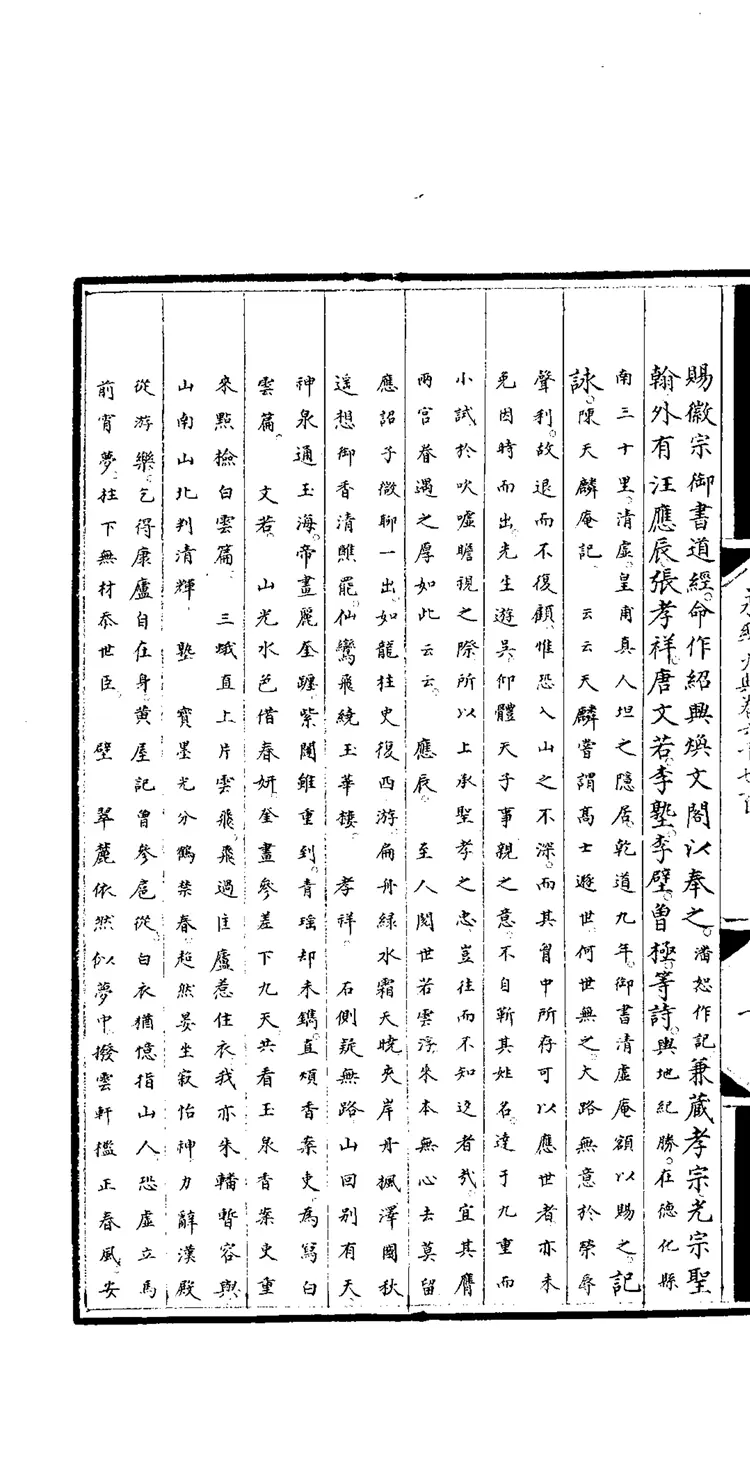 賜徽宗御書道經。命作紹興煥文閣以奉之。潘恕作記兼藏孝宗光宗聖
翰。外有汪應辰張孝祥唐文若李塾李壁曾極等詩。輿地紀勝。在德化縣
南三十里。清虛皇甫真人坦之隱居。乾道九年。御書清虛庵額以賜之。記
詠。陳天麟庵記 云云天麟嘗謂高士遯世。何世無之。大路無意於榮辱
聲利。故退而不復顧。惟恐入山之不深。而其胷中所存可以應世者。亦未
免因時而出。先生遊吳。仰體天子事親之意。不自靳其姓名。達于九重而
小試於吹噓瞻視之際。所以上承聖孝之忠。豈往而不知返者哉。宜其膺
兩宮眷遇之厚如此云云。 應辰。 至人閱世若雲浮。來本無心去莫留
應詔子微聊一出。如龍柱史復西游。扁舟綠水霜天曉。夾岸丹楓澤國秋
遥想御香清醮罷。仙鸞飛繞玉華樓。 孝祥。 石側疑無路。山回別有天
神泉通玉海。帝畫麗奎躔。紫闥雖重到。青瑶却未鐫。直煩香案吏。為寫白
雲篇。 文若。 山光水色借春妍。奎畫參差下九天。共看玉泉香案吏。重
來點檢白雲篇。 三峨直上片雲飛。飛過匡廬惹住衣。我亦朱轓暫容與
山南山北判清輝 塾 寶墨光分鶴禁春。超然晏坐寂怡神。力辭漢殿
從游樂。乞得康廬自在身。黃屋記曾參扈從。白衣猶憶指山人。恐虛立馬
前宵夢。柱下無材忝世臣。 壁 翠麓依然似夢中。撥雲軒檻正春風。安
永樂大典卷六千七百